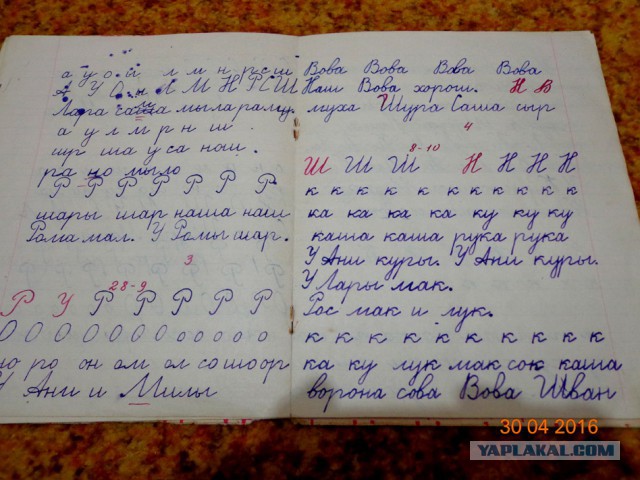 а у о й л м н р с ш
А У О ы Л М Н Р С Ш
Лара саша мыла раму.
а у л м р н ш
шр ша уса наш.
ра но мыло
Р Р Р Р Р Р Р
шары шар наша наш
Рома мал. У Ромы шар.
3
28-9
Р У Р Р Р Р Р
О О О О О О О о о о о о
но ро он ом ол со шо ор
У Ани и Милы
Вова Вова Вова Вова
Наш Вова хорош. Н В
муха Шура Саша сыр
4
8-10
Ш Ш Ш Н Н Н Н
к к к к к к к к к к
ка ка ка ка ку ку ку
каша каша рука рука
У Ани куры. У Ани куры.
У Лары мак.
Рос мак и лук.
к к к к к к к к к к
ка ку лук мак сок каша
ворона сова Вова Шван
30 04 2016
YAPLAKAL.COM